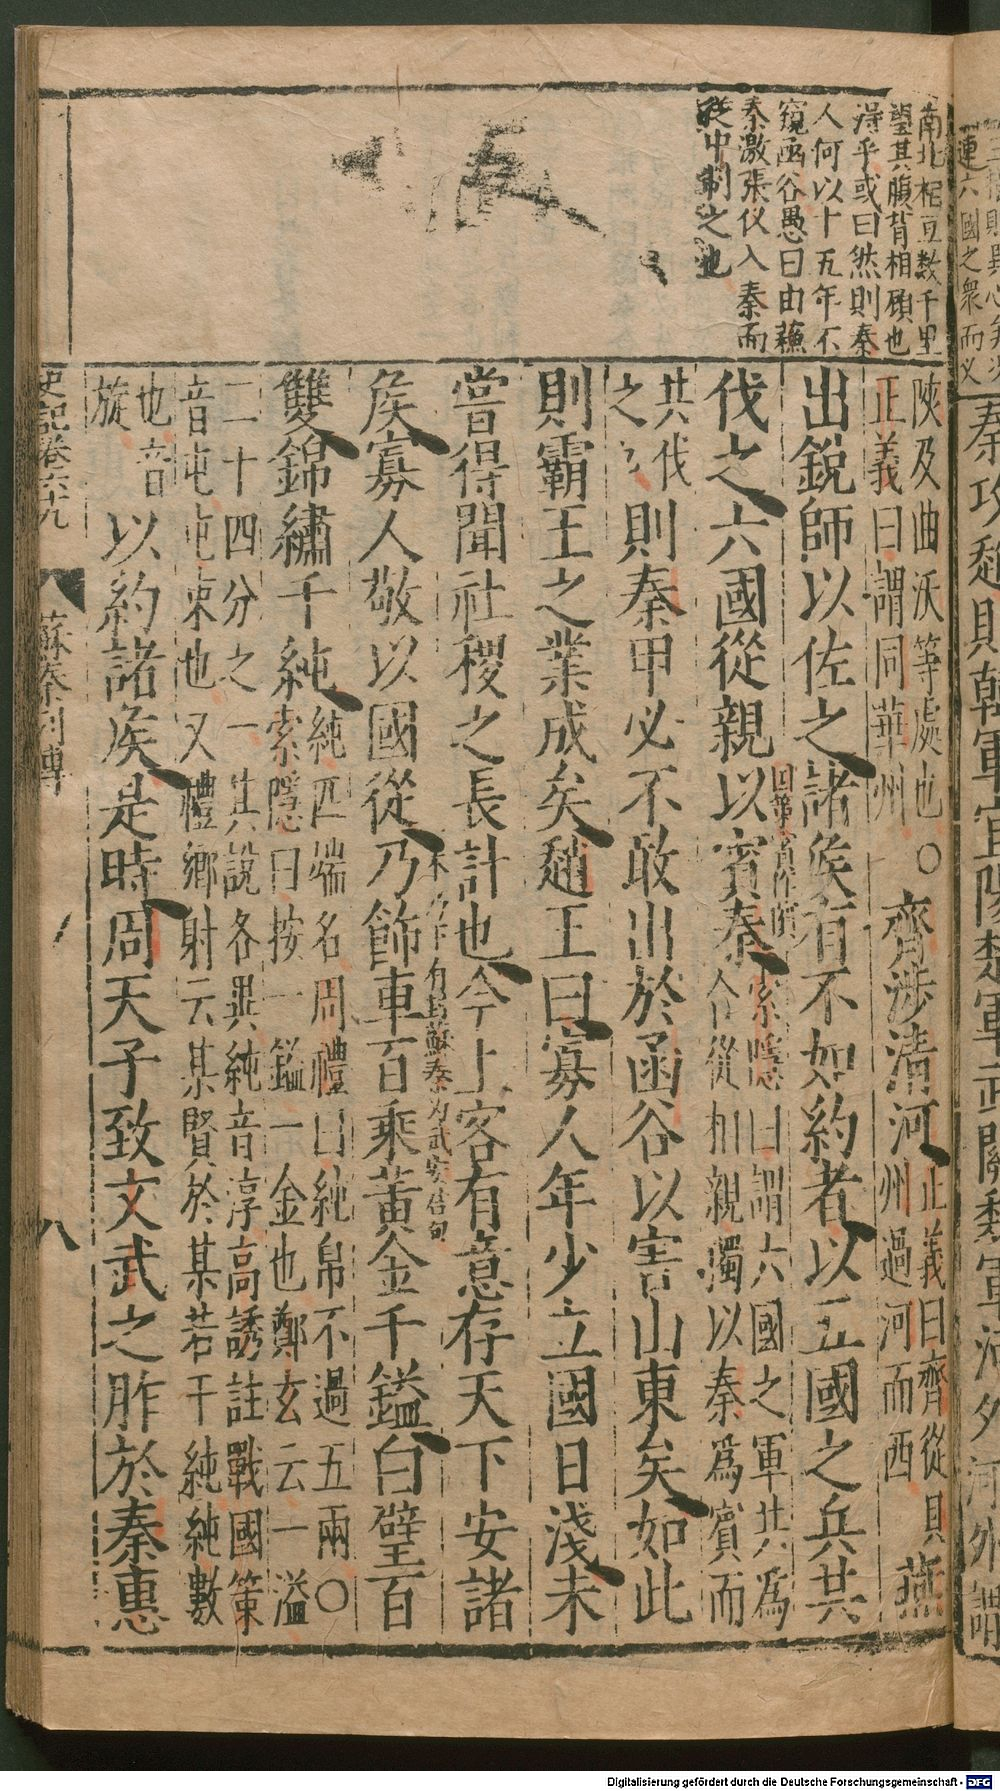 南北相亘数千里
望其腹背相顧也
得乎或曰然則秦
人何以十五年不
窺函谷愚曰由蘇
秦激張仪入秦而
從中制之也
連六國之衆而义
秦攻趙則韓軍宜陽楚軍武關魏軍河外河外謂
陝及曲沃等處也〇
正義曰謂同華州
齊涉清河
正義曰齊從貝
州過河而西
燕
出銳師以佐之諸矦有不如約者以五國之兵共
伐之六國從親以賓秦
索隱曰謂六國之軍共為
合從相親獨以秦為賓而
共伐
之
則秦甲必不敢出於函谷以害山東矣如此
則霸王之業成矣趙王曰寡人年少立國日淺未
嘗得聞社稷之長計也今上客有意存天下安諸
矦寡人敬以國從乃飾車百乘黃金千鎰白璧百
雙錦繡千純
純匹端名周禮曰純帛不過五兩〇
索隱曰按一鎰一金也鄭玄云一溢
二十四分之一其說各異純音淳高誘註戰國策
音屯屯束也又禮鄉射云某賢於某若干純純數
也音
旋
以約諸矦是時周天子致文武之胙於秦惠
史記卷六十九
蘇秦列傳
八
Digitalisierung gefördert durch die Deutsche Forschungsgemeinschaft - DFG